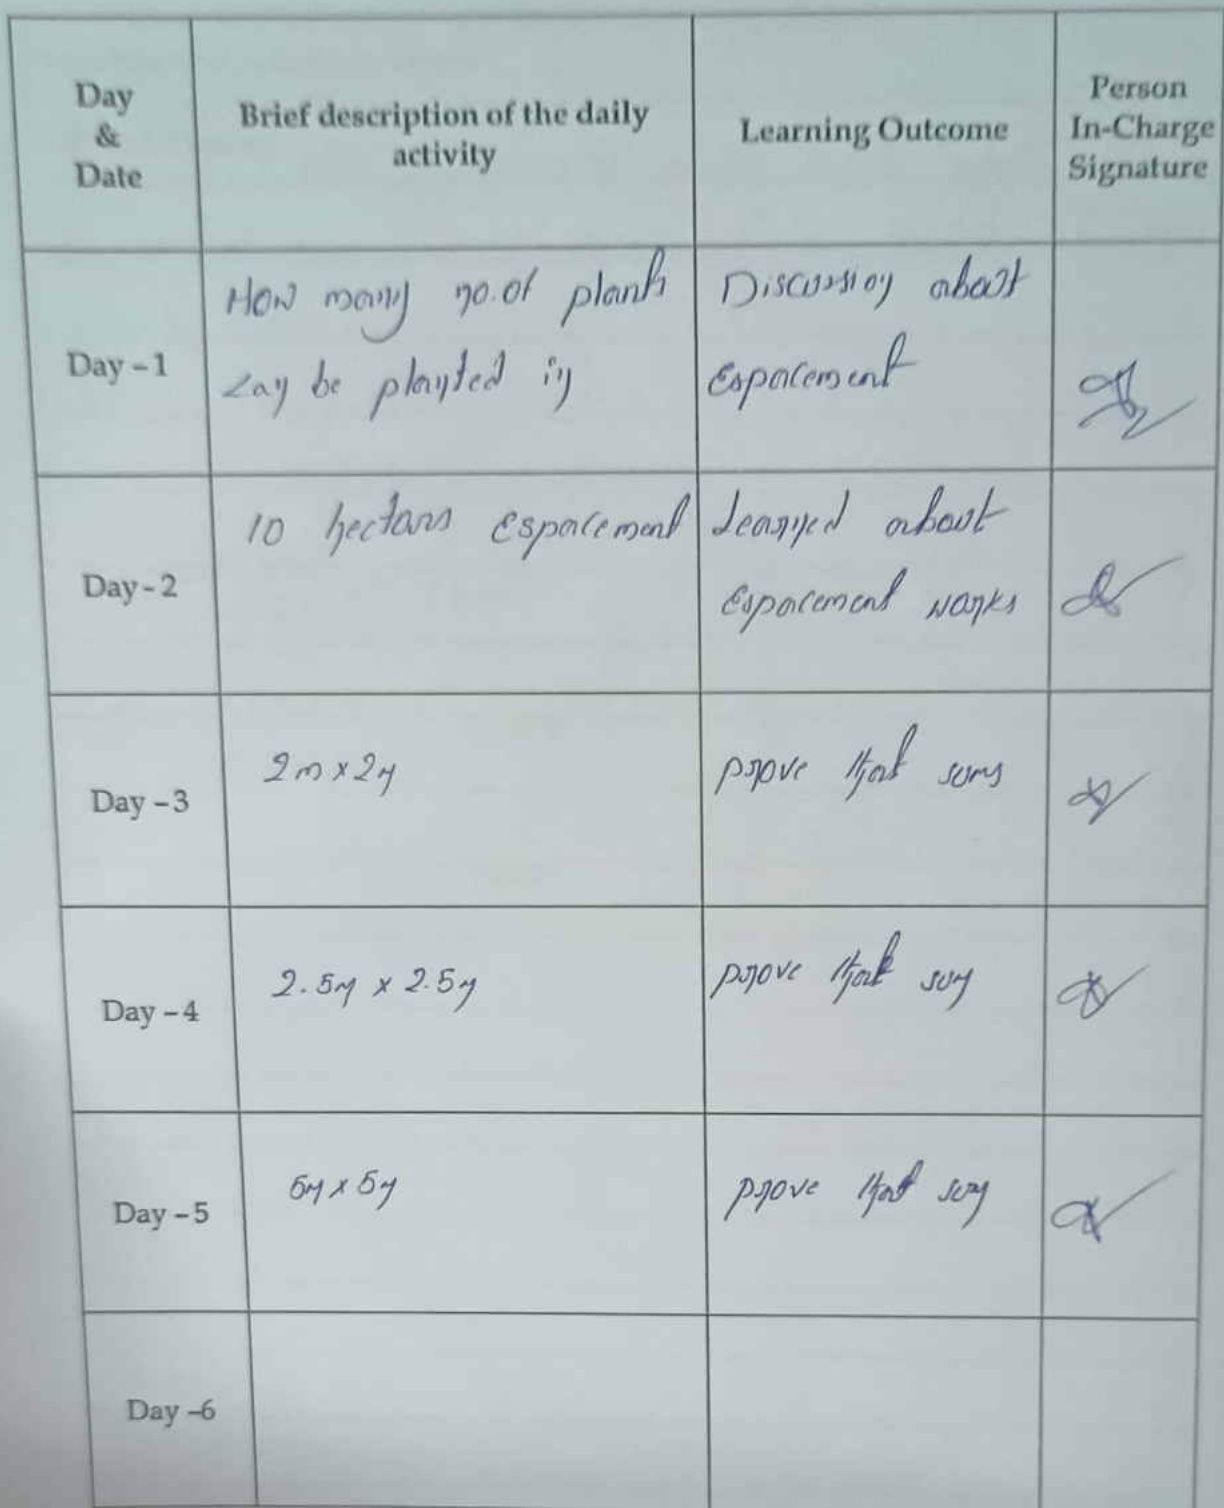 Day
&
Date
Brief description of the daily
activity
Learning Outcome
Person
In-Charge
Signature
Day - 1
How many no. of plants
can be planted in
Discussion about
Espacement
Day - 2
10 hectars Espacement
Learned about
Espacement works
Day - 3
2m x 2m
prove that sums
Day - 4
2.5m x 2.5m
prove that sum
Day - 5
5m x 5m
prove that sum
Day -6